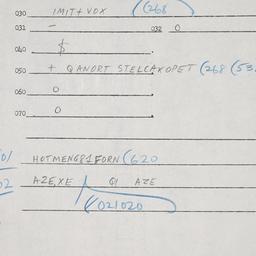 030 IMIT+ VOX (268
031 - 032 O
040 $
050 + QANORT STELCAXOPET (268 (53.
060 O
070 O
01 HOTMENG81FORN (620
02 AZE,XE QI AZE
(021020